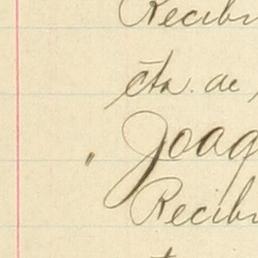 Recibi
cta. de
" Joaq
Recibi